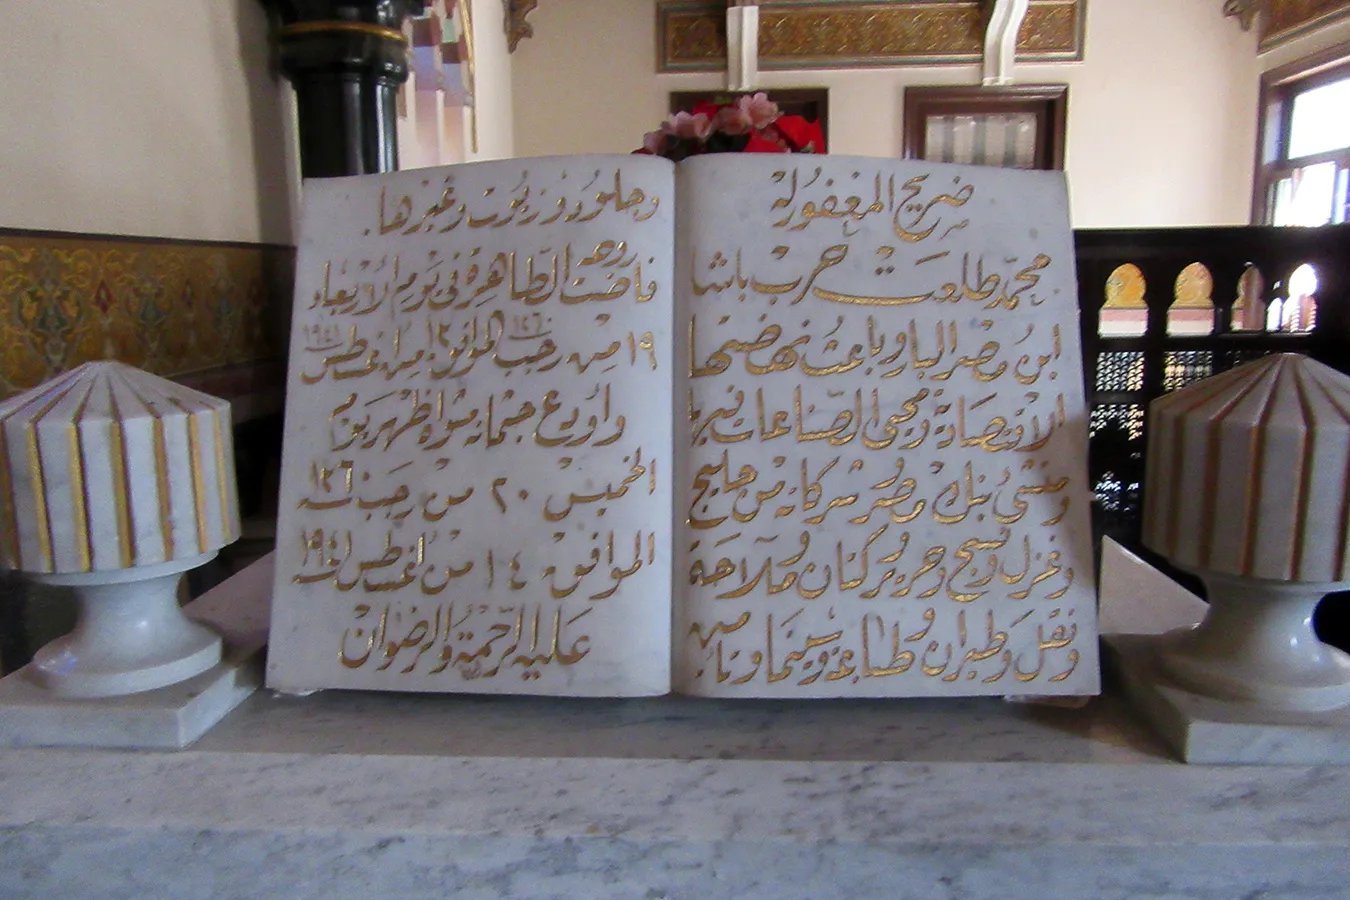 ضريح المغفور له
محمّد طلعت حرب باشا
ابن مصر البار وباعث نهضتها
الاقتصادية ومحيى الصناعات فيها
ومنشئ بنك مصر وشركاته من حليج
وغزل ونسج وحرير وكتان وملاحة
ونقل وطيران وطباعة وسينما وتأمين
وجلود وزيوت وغيرها.
فاضت روحه الطاهرة فى يوم الأربعاء
١٩ من رجب ١٣٦٠ الموافق ١٣ من أغسطس ١٩٤١
وأودع جثمانه مثواه ظهر يوم
الخميس ٢٠ من رجب سنة ١٣٦٠
الموافق ١٤ من أغسطس سنة ١٩٤١
عليه الرحمة والرضوان